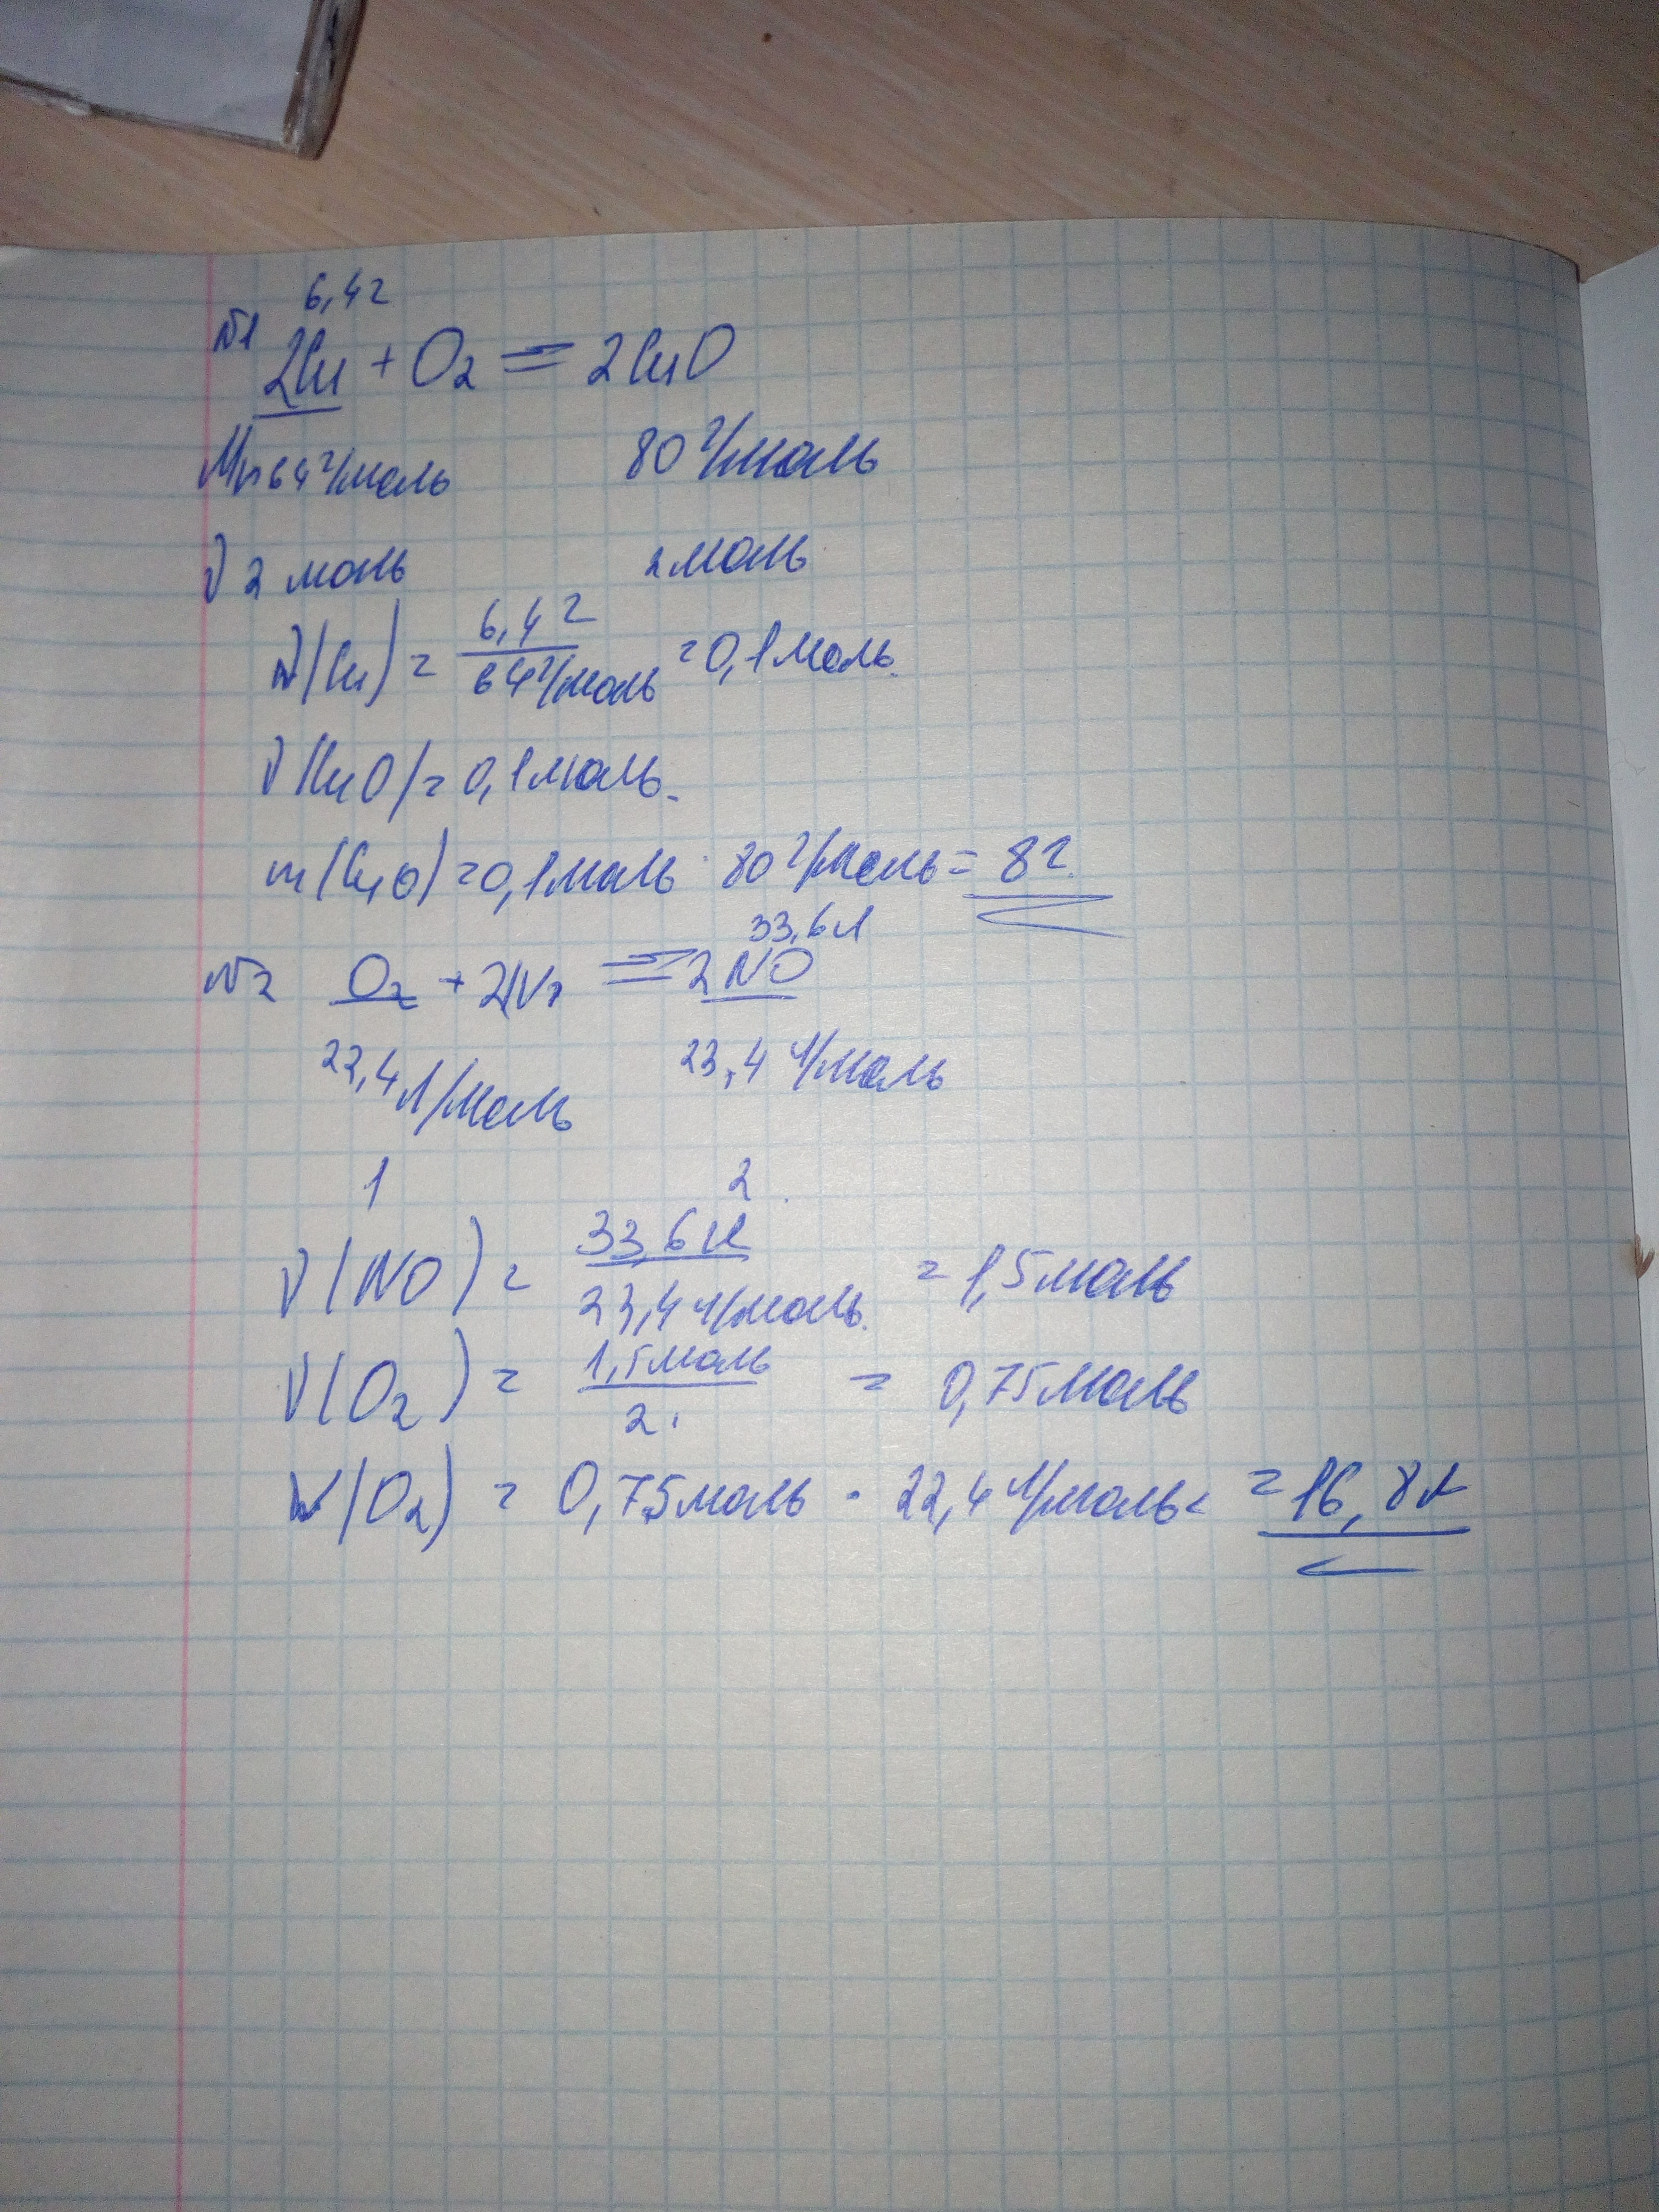 6,4г
№1 2Cu + O₂ = 2CuO
Mr 64 г/моль 80 г/моль
ν 2 моль 2 моль
ν(Cu) = 6,4 г / 64 г/моль = 0,1 моль.
ν(CuO) = 0,1 моль.
m(CuO) = 0,1 моль · 80 г/моль = 8г.
33,6 л
№2 O₂ + N₂ = 2NO
22,4 л/моль 22,4 л/моль
1 2
ν(NO) = 33,6 л / 22,4 л/моль. = 1,5 моль
ν(O₂) = 1,5 моль / 2. = 0,75 моль
V(O₂) = 0,75 моль · 22,4 л/моль = 16,8 л